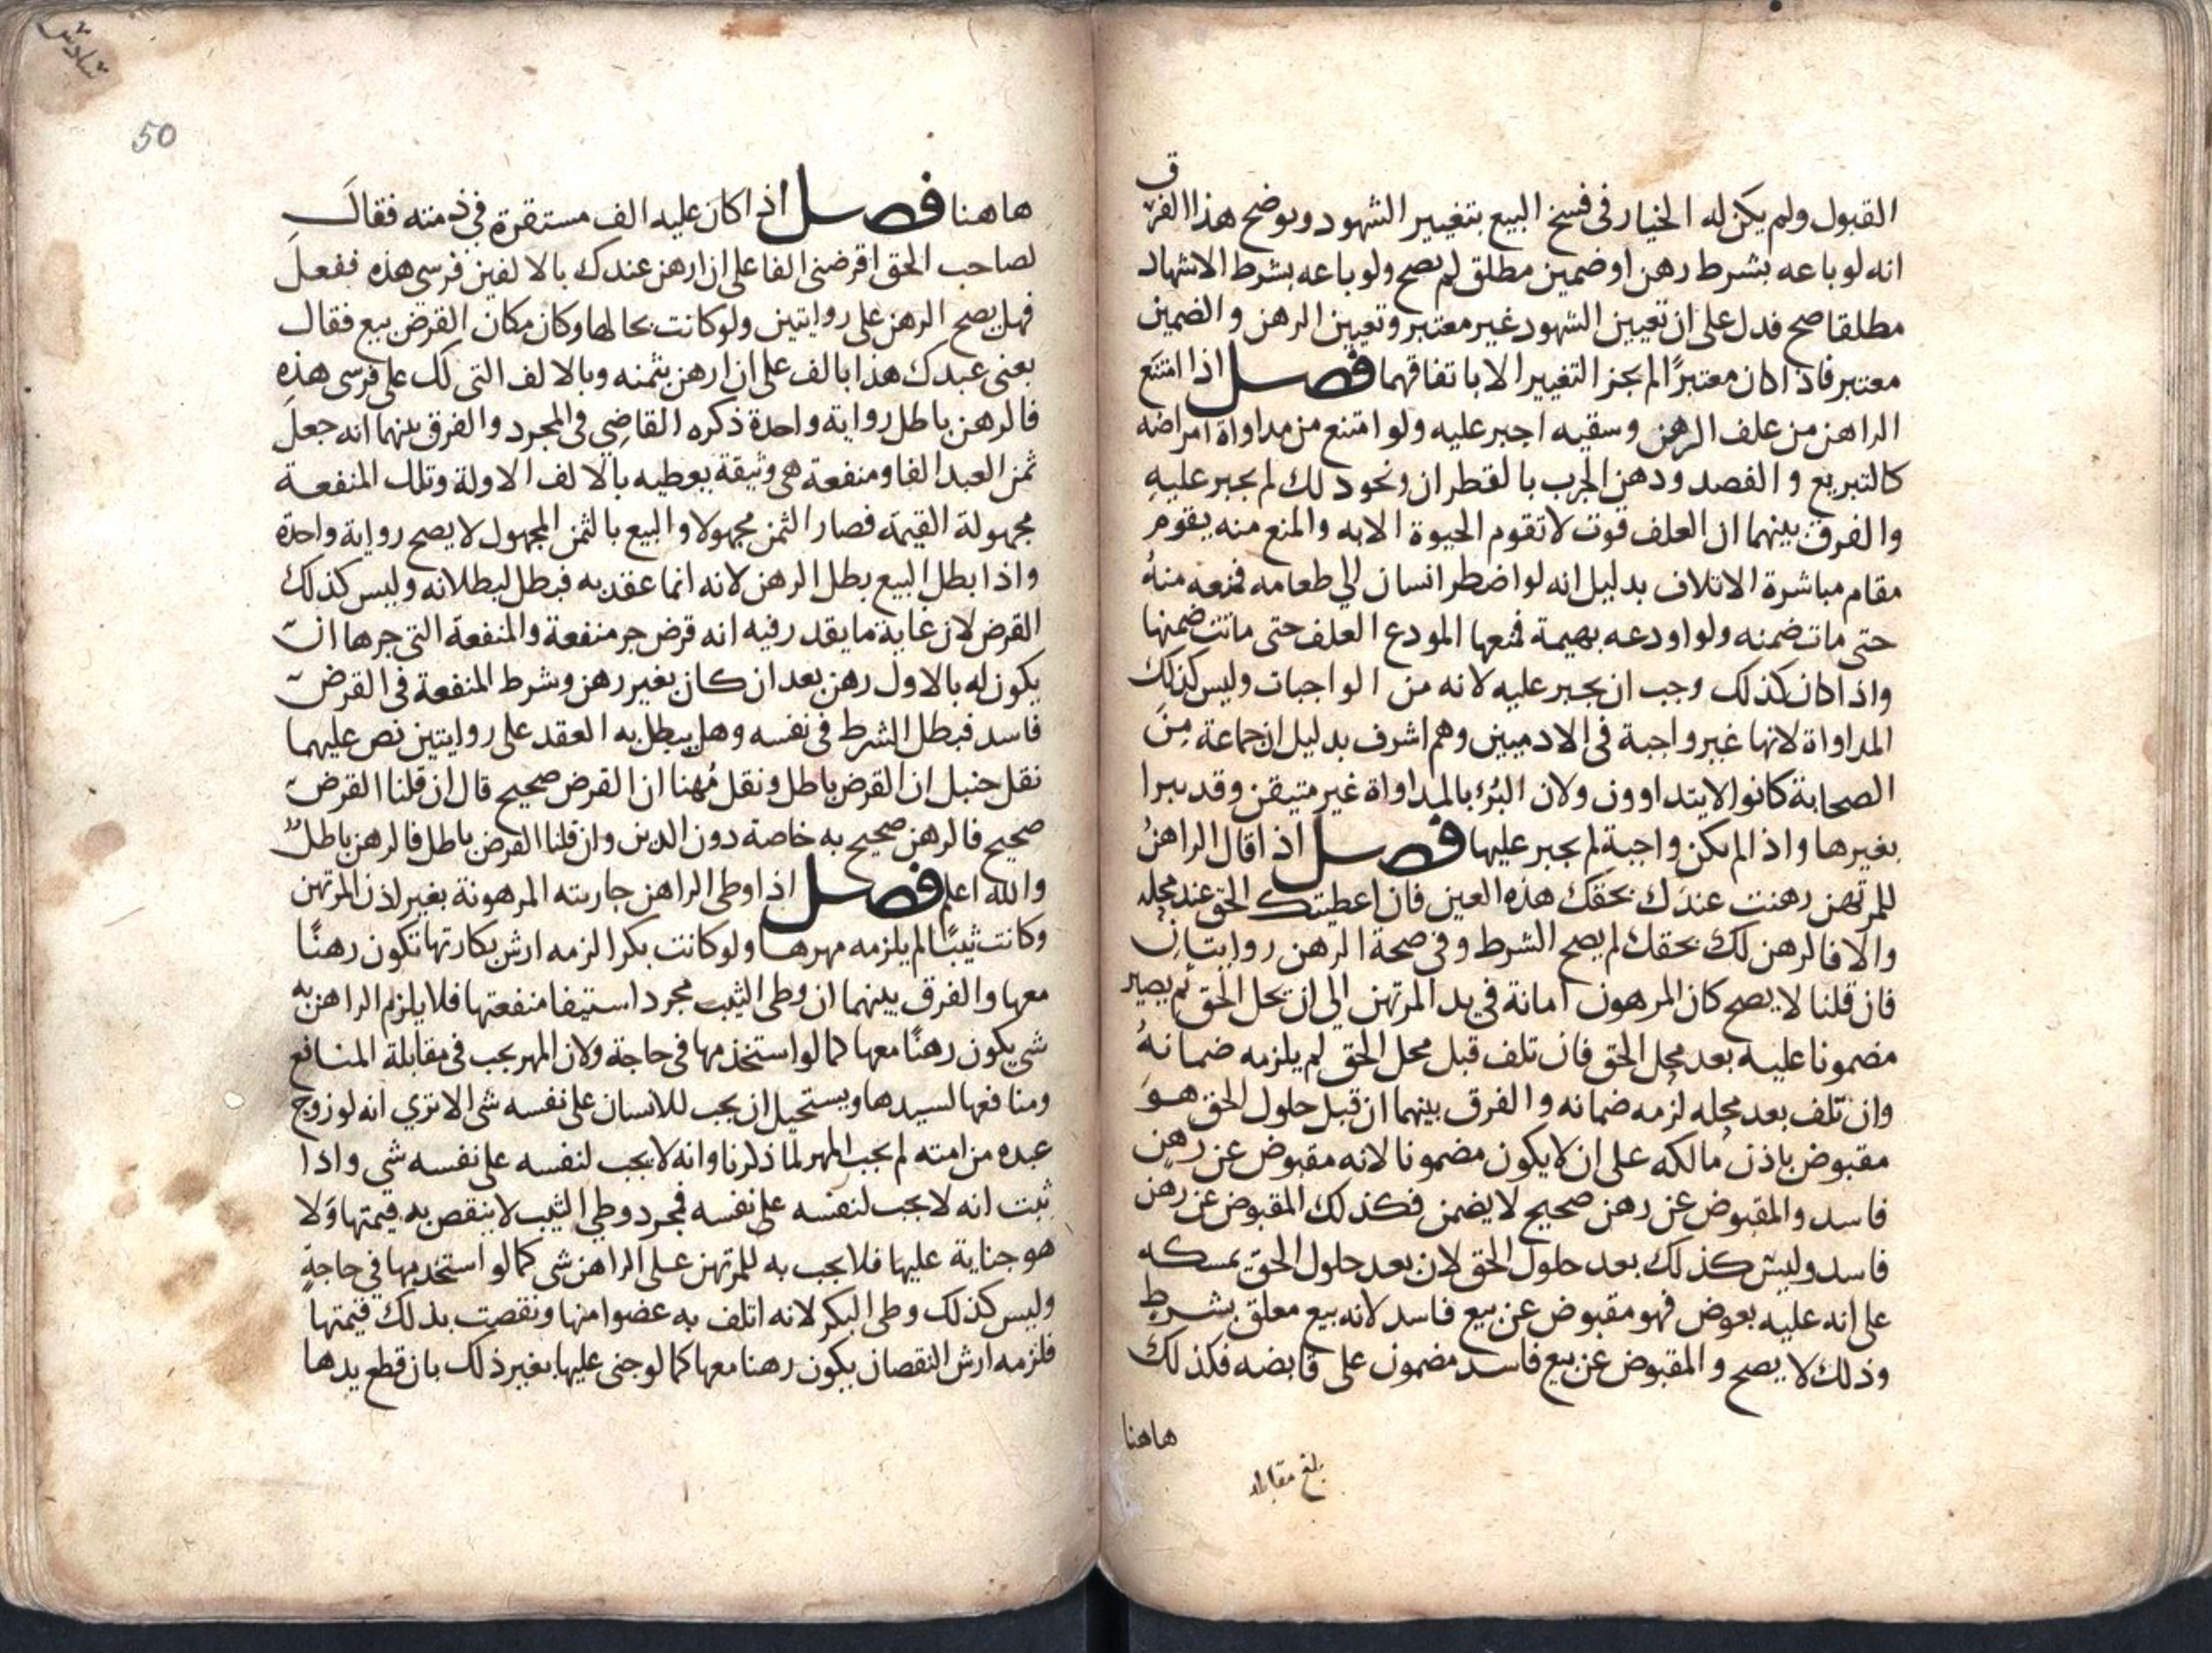 القبول ولم يكن له الخيار في فسخ البيع بتغيير الشهود ويوضح هذا الفرق
انه لو باعه بشرط رهن او ضمين مطلق لم يصح ولو باعه بشرط الاشهاد
مطلقا صح فدل على ان تعيين الشهود غير معتبر وتعيين الرهن والضمين
معتبر فاذا كان معتبرًا لم يجز التغيير الا باتفاقهما فصل اذا امتنع
الراهن من علف الرهن وسقيه اجبر عليه ولو امتنع من مداواة امراضه
كالتبزيغ والفصد ودهن الجرب بالقطران ونحو ذلك لم يجبر عليه
والفرق بينهما ان العلف قوت لا تقوم الحيوة الا به والمنع منه يقوم
مقام مباشرة الاتلاف بدليل انه لو اضطر انسان الي طعامه فمنعه منهُ
حتى مات ضمنه ولو اودعه بهيمة فمنعها المودع العلف حتى ماتت ضمنها
واذا كان كذلك وجب ان يجبر عليه لانه من الواجبات وليس كذلك
المداواة لانها غير واجبة في الادميين وهم اشرف بدليل ان جماعة مِنَ
الصحابة كانوا لا يتداوون ولان البُرْء بالمداواة غير متيقن وقد يبرا
بغيرها واذا لم يكن واجبة لم يجبر عليها فصل اذا قال الراهنُ
للمرتهن رهنت عندك بحقك هذه العين فان اعطيتك الحق عند محله
والا فالرهن لك بحقك لم يصح الشرط وفي صحة الرهن روايتانِ
فان قلنا لا يصح كان المرهون امانة في يد المرتهن الي ان يحل الحق ثم يصير
مضمونا عليه بعد محل الحق فان تلف قبل محل الحق لم يلزمه ضمانهُ
وان تلف بعد محله لزمه ضمانه والفرق بينهما ان قبل حلول الحق هوَ
مقبوض باذن مالكه على ان لا يكون مضمونا لانه مقبوض عن رهنٍ
فاسد والمقبوض عن رهن صحيح لا يضمن فكذلك المقبوض عن رهن
فاسد وليس كذلك بعد حلول الحق لان بعد حلول الحق يمسكه
على انه عليه بعوض فهو مقبوض عن بيع فاسد لانه بيع معلق بشرطٍ
وذلك لا يصح والمقبوض عن بيع فاسد مضمون على قابضه فكذلك
هاهنا
بلغ مقابله
50
هاهنا فصل اذا كان عليه الف مستقرة في ذمته فقالَ
لصاحب الحق اقرضني الفا على ان ارهن عندك بالالفين فرسي هذه ففعلَ
فهل يصح الرهن على روايتين ولو كانت بحالها وكان مكان القرض بيع فقال
بعني عبدك هذا بالف على ان ارهن بثمنه وبالالف التي لك على فرسي هذهِ
فالرهن باطل رواية واحدة ذكره القاضي في المجرد والفرق بينهما انه جعلَ
ثمن العبد الفا ومنفعة هي وثيقة يعطيه بالالف الاولة وتلك المنفعة
مجهولة القيمة فصار الثمن مجهولا والبيع بالثمن المجهول لا يصح رواية واحدة
واذا بطل البيع بطل الرهن لانه انما عقد به فبطل لبطلانه وليس كذلك
القرض لان غاية ما يقدر فيه انه قرض جر منفعة والمنفعة التي جرها ان
يكون له بالاول رهن بعد ان كان بغير رهن وشرط المنفعة في القرض
فاسد فبطل الشرط في نفسه وهل يبطل به العقد على روايتين نص عليهما
نقل حنبل ان القرض باطل ونقل مُهنا ان القرض صحيح قال ان قلنا القرض
صحيح فالرهن صحيح به خاصة دون الدين وان قلنا القرض باطل فالرهن باطلٌ
والله اعلم فصل اذا وطي الراهن جاريته المرهونة بغير اذن المرتهن
وكانت ثيبًا لم يلزمه مهرها ولو كانت بكرا لزمه ارش بكارتها تكون رهنًا
معها والفرق بينهما ان وطي الثيب مجرد استيفا منفعتها فلا يلزم الراهن به
شي يكون رهنًا معها كما لو استخدمها في حاجة ولان المهر يجب في مقابلة المنافع
ومنافعها لسيدها ويستحيل ان يجب للانسان على نفسه شي الا تري انه لو زوج
عبده من امته لم يجب المهر لما ذكرنا وانه لا يجب لنفسه على نفسه شي واذا
ثبت انه لا يجب لنفسه على نفسه فمجرد وطي الثيب لا ينقص به قيمتها وَلا
هو جناية عليها فلا يجب به للمرتهن على الراهن شي كما لو استخدمها في حاجةٍ
وليس كذلك وطي البكر لانه اتلف به عضوا منها ونقصت بذلك قيمتها
فلزمه ارش النقصان يكون رهنا معها كما لو جنى عليها بغير ذلك بان قطع يدها